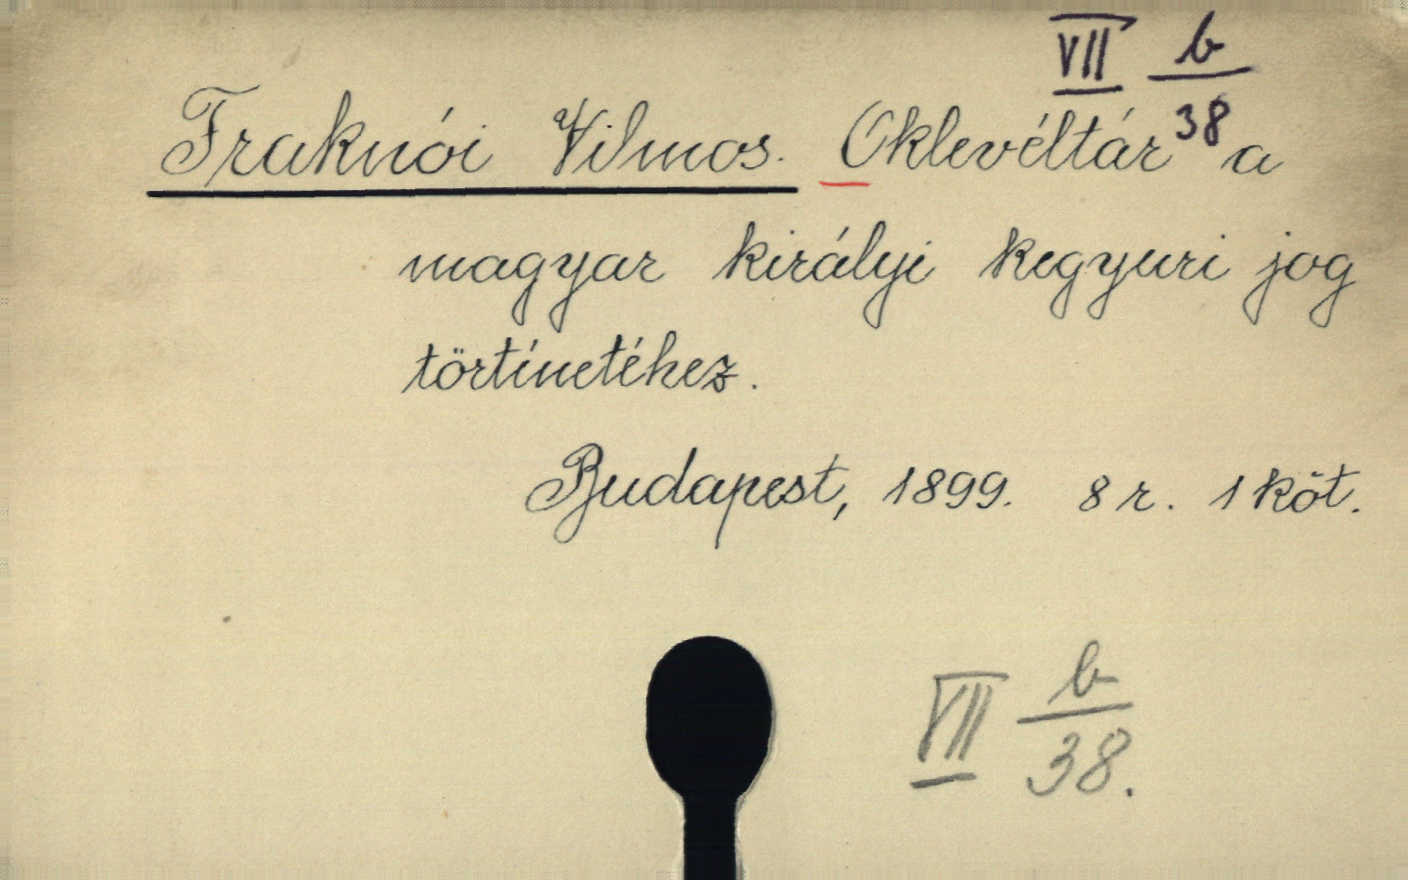 VII b/38
Fraknói Vilmos. Oklevéltár a
magyar királyi kegyuri jog
történetéhez.
Budapest, 1899. 8 r. 1 köt.
VII b/38.